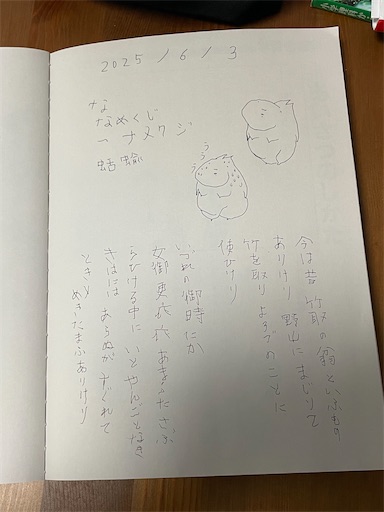 2025/6/3
な
なめくじ
ーナメクジ
蛞蝓
うううう
今は昔 竹取の翁といふもの
ありけり 野山にまじりて
竹を取り よろづのことに
使ひけり
いづれの御時にか
女御 更衣 あまたさぶ
らひける中に いとやんごとなき
きはには あらぬが すぐれて
ときめきたまふありけり